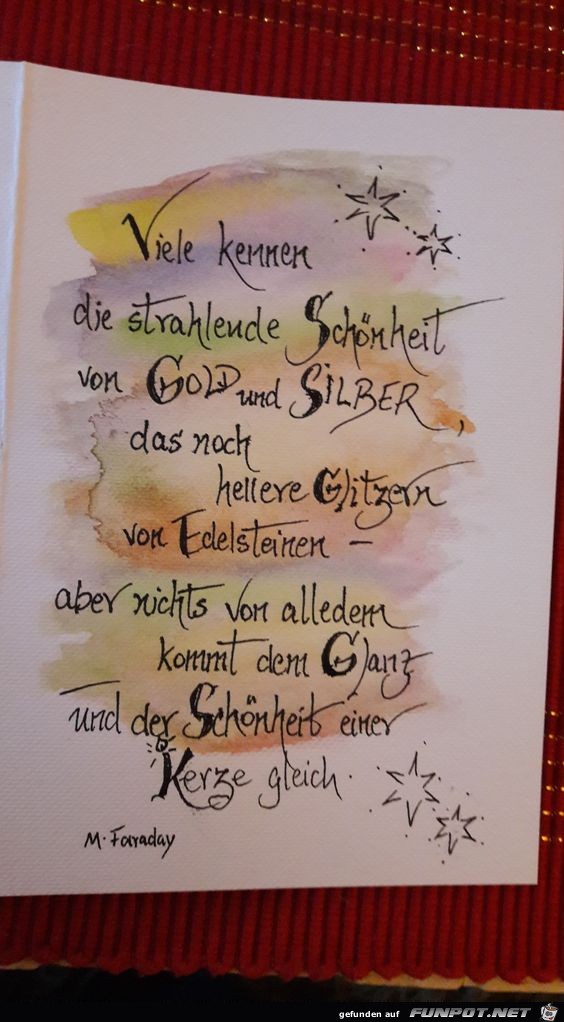 Viele kennen
die strahlende Schönheit
von GOLD und SILBER,
das noch
hellere Glitzern
von Edelsteinen –
aber nichts von alledem
kommt dem Glanz
und der Schönheit einer
Kerze gleich.
M. Faraday
gefunden auf FUNPOT.NET